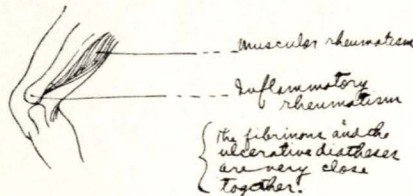 Muscular rheumatism
Inflammatory
rheumatism
The fibrinous and the
ulcerative diatheses
are very close
together.